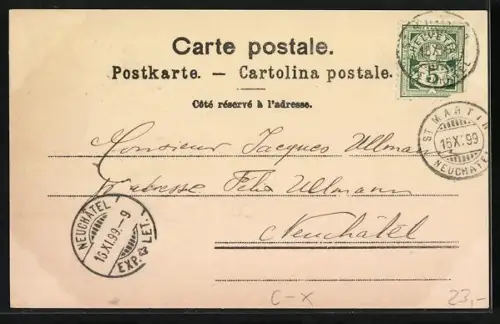 Carte postale.
Postkarte. — Cartolina postale.
Côté réservé à l'adresse.
HELVETIA
5
ST MARTIN
16 XI 99
NEUCHÂTEL
Monsieur Jacques Ullmann
adresse Félix Ullmann
Neuchâtel
NEUCHÂTEL
16.XI.99.–9
EXP. LET.
C–X
23,-